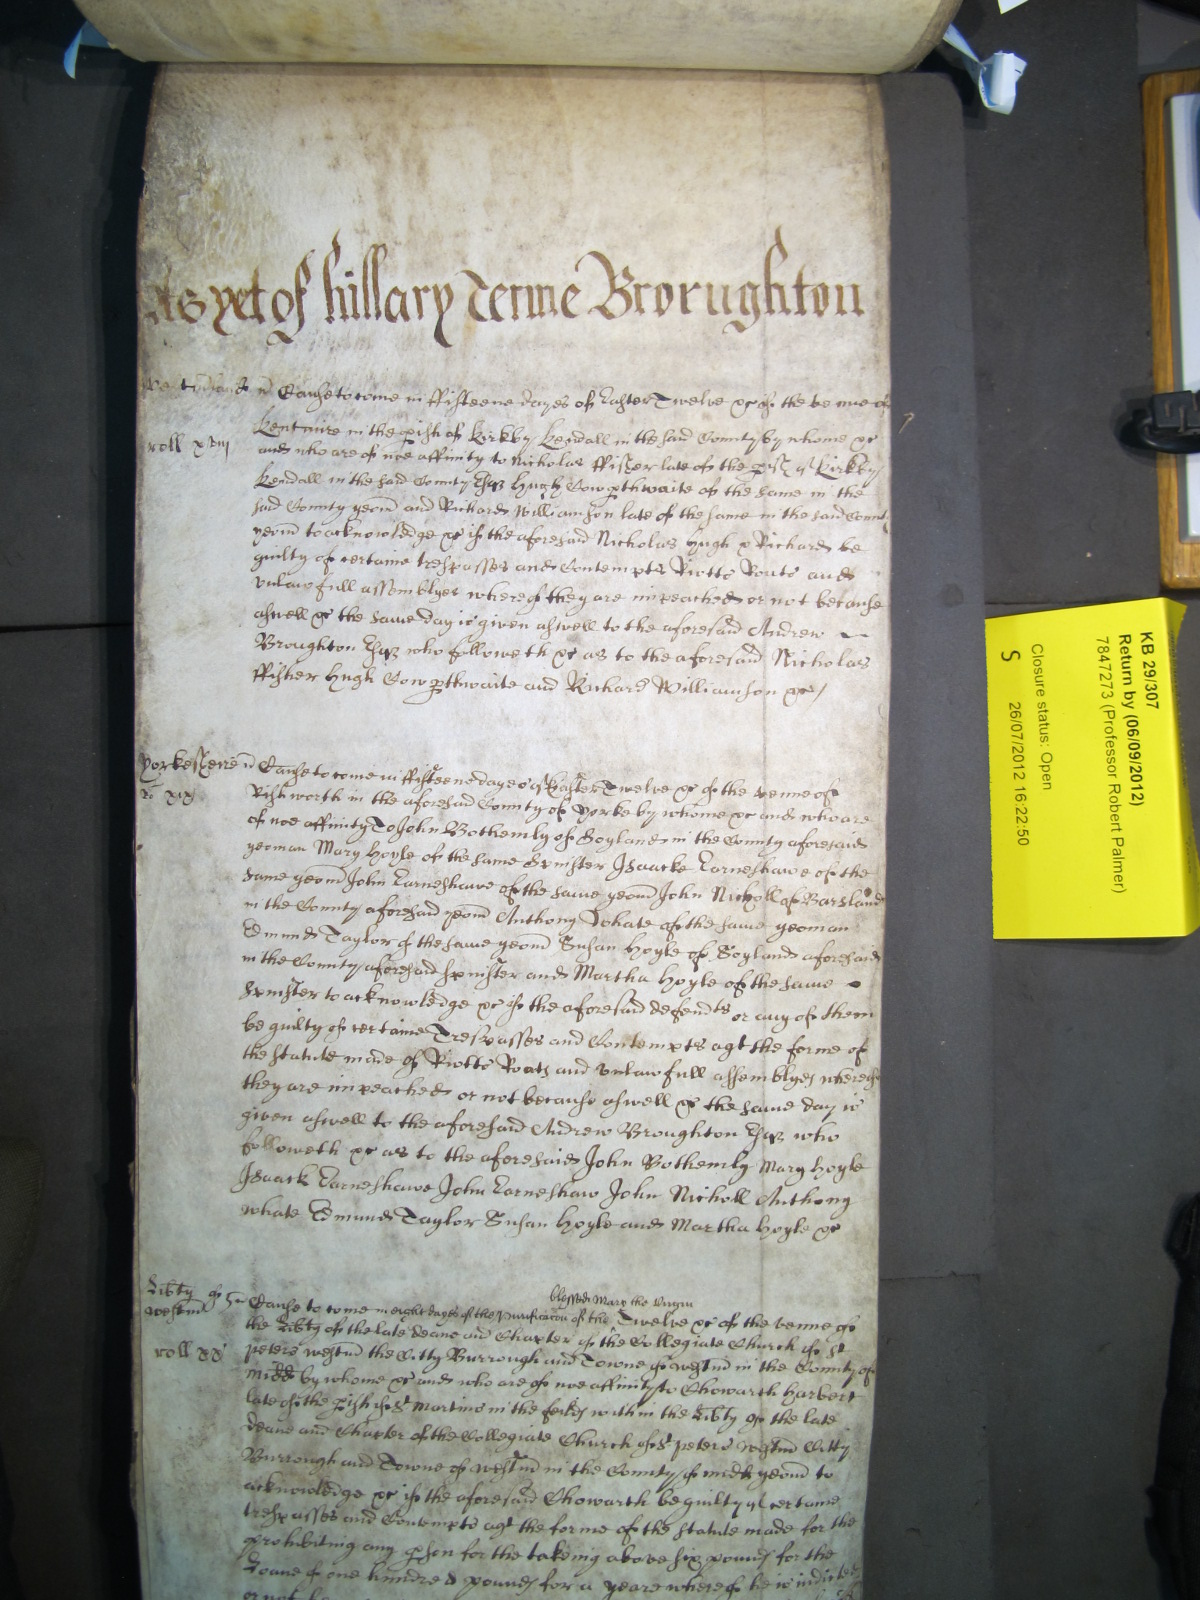 As yet of hillary Terme Brorughton
Westmland ss Cause to come in fifteene dayes of Easter Twelve &c of the venue of
Kentmire in the pish of Kirkby Kendall in the said County by whome &c
roll xviij
and who are of noe affinity to Nicholas ffisher late of the pish of Kirkby
Kendall in the said County Esqr Hugh Cowpthwaite of the same in the
said County yeom and Richard Williamson late of the same in the said County
yeom to acknowledge &c if the aforesaid Nicholas Hugh & Richard be
guilty of certaine trespasses and Contempts Riotts Routs and
unlawfull assemblyes whereof they are impeached or not because
aswell &c the same day is given aswell to the aforesaid Andrew
Broughton Esqr who followeth &c as to the aforesaid Nicholas
ffisher Hugh Cowpthwaite and Richard Williamson &c/
Yorkeshere ss Cause to come in fifteene dayes of Easter Twelve &c of the venue of
ro xix
Rishworth in the aforesaid County of Yorke by whome &c and who are
of noe affinity To John Bothemly of Soyland in the County aforesaid
yeoman Mary Hoyle of the same Spinster Isaacke Earneshawe of the
same yeom John Earneshawe of the same yeom John Nicholl of Barsland
in the County aforesaid yeom Anthony Whate of the same yeoman
Edmund Taylor of the same yeom Susan Hoyle of Soyland aforesaid
in the County aforesaid spinster and Martha Hoyle of the same
Spinster to acknowledge &c if the aforesaid defendts or any of them
be guilty of certaine Trespasses and Contempts agt the forme of
the Statute made of Riotts Routs and unlawfull assemblyes whereof
they are impeached or not because aswell &c the same day is
given aswell to the aforesaid Andrew Broughton Esqr who
followeth &c as to the aforesaid John Bothemly Mary Hoyle
Isaack Earneshawe John Earneshaw John Nicholl Anthony
Whate Edmund Taylor Susan Hoyle and Martha Hoyle &c
blessed Mary the Virgin
Libty of westm ss Cause to come in eight dayes of the Purificacon of the Twelve &c of the venue of
the Libty of the late deane and Chapter of the Collegiate Church of St
roll xx
peters westm the Citty Burrough and Towne of westm in the County of
midd by whome &c and who are of noe affinity to Howarth Harbert
late of the pish of St Martins in the feilds within the Libty of the late
deane and Chapter of the Collegiate Church of St peters westm Citty
Burrough and Towne of westm in the County of midd yeom to
acknowledge &c if the aforesaid Howarth be guilty of certaine
trespasses and Contempts agt the forme of the Statute made for the
prohibiting any pson for the takeing above six pounds for the
Loane of one hundred pounds for a yeare whereof he is indicted
or not
KB 29/307
Return by (06/09/2012)
7847273 (Professor Robert Palmer)
Closure status: Open
S 26/07/2012 16:22:50